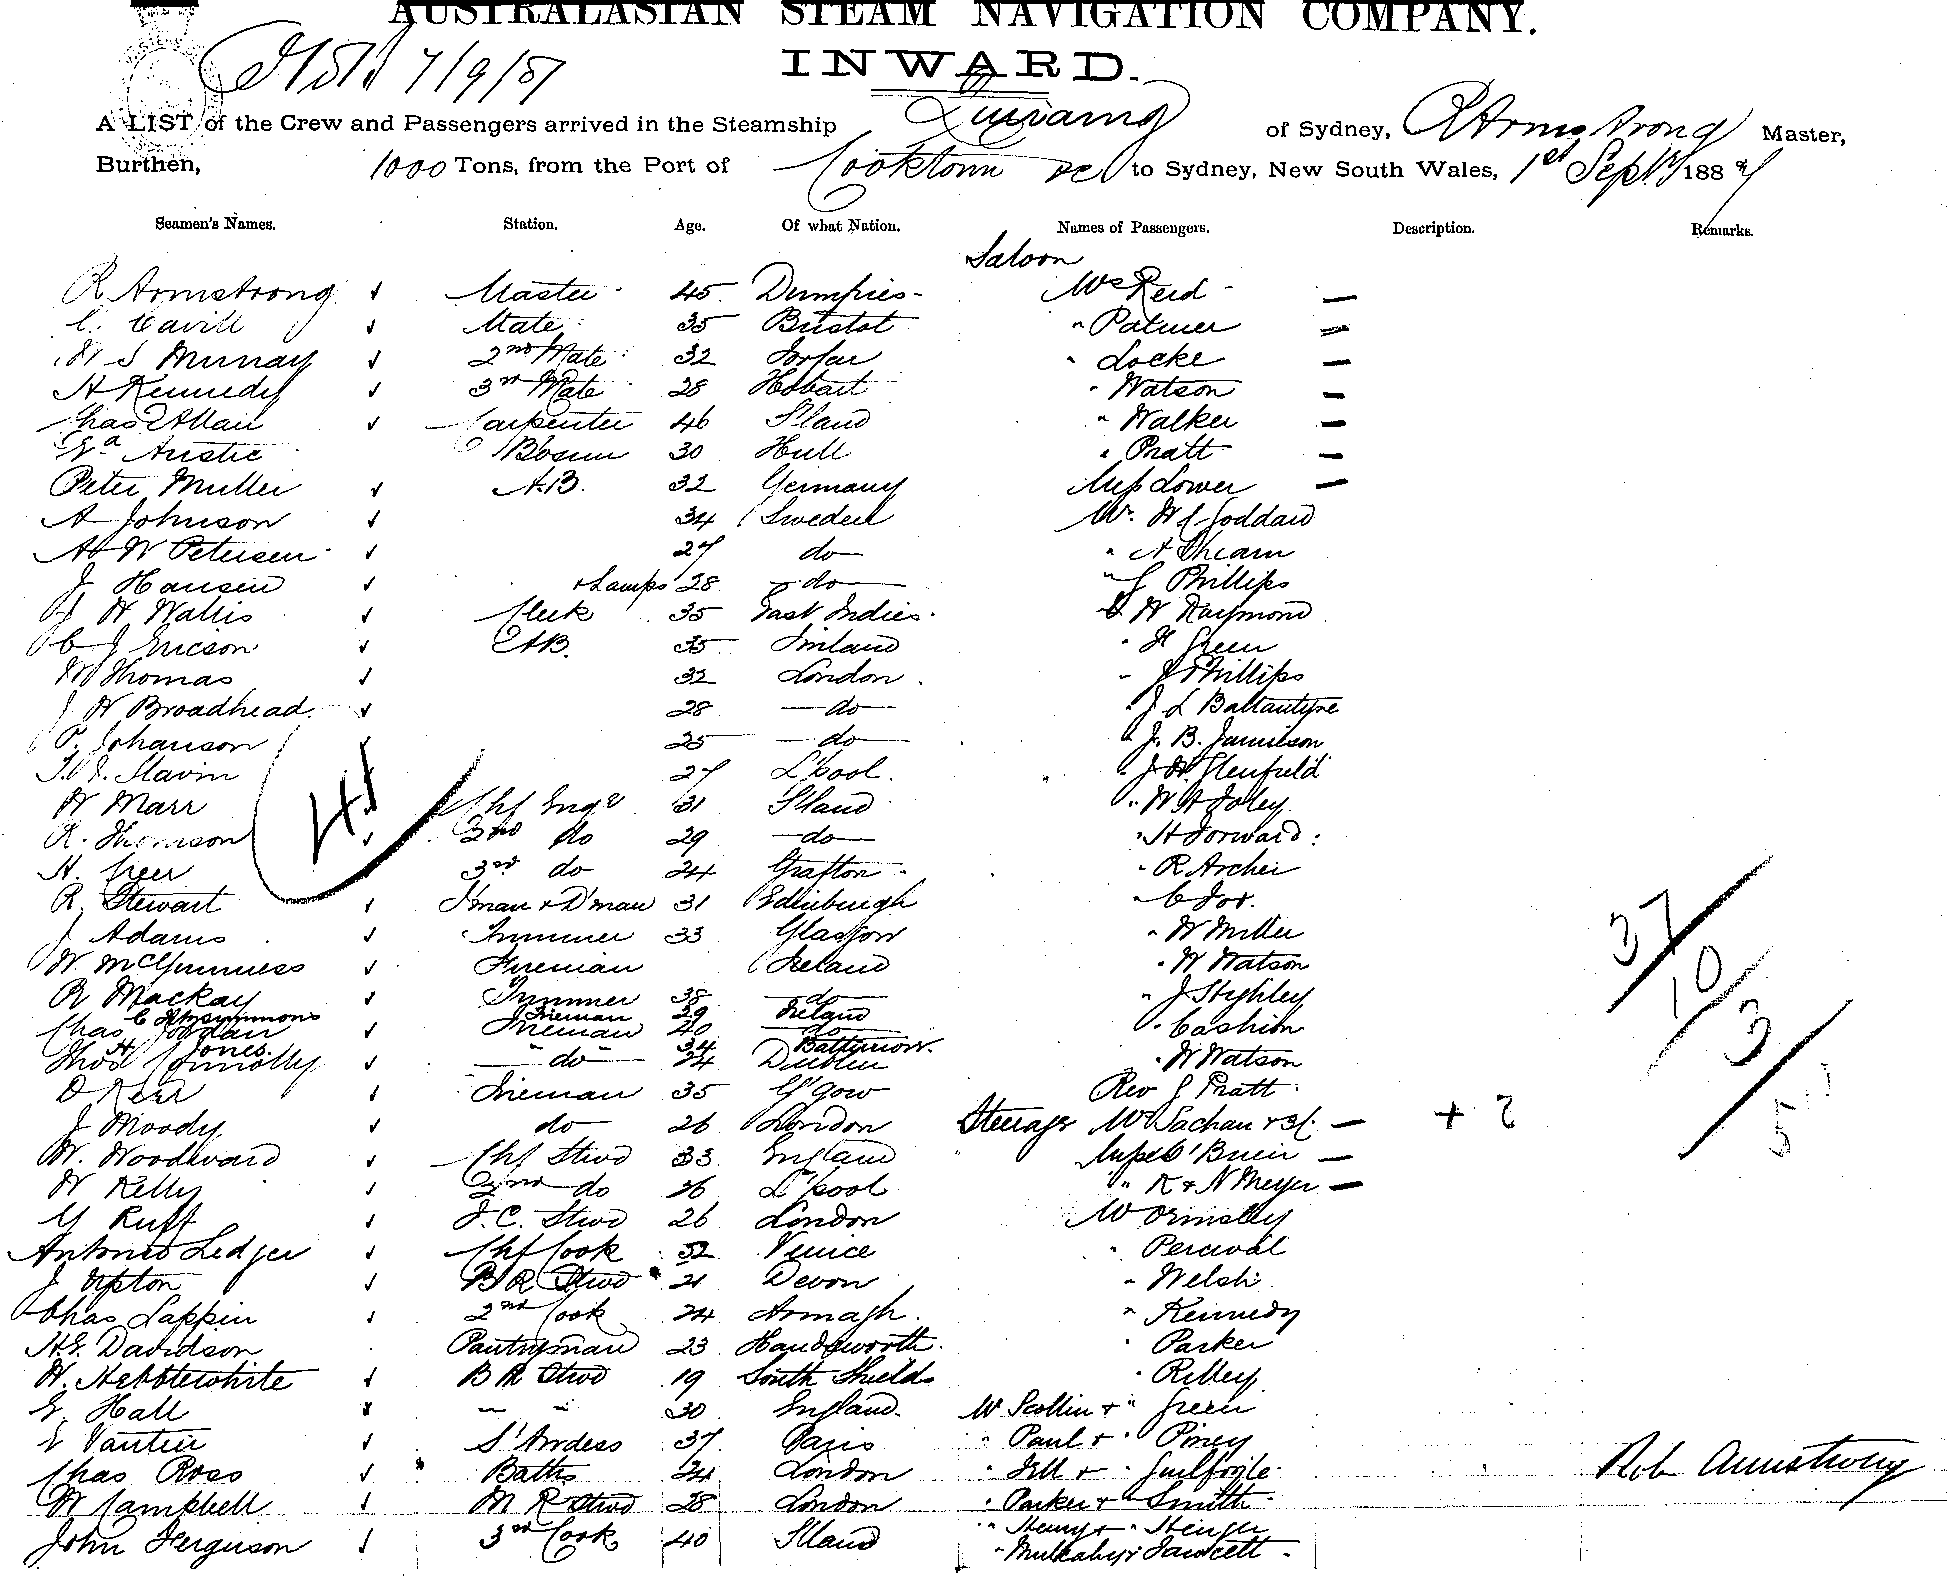 AUSTRALASIAN STEAM NAVIGATION COMPANY.
INWARD.
7/9/87
A LIST of the Crew and Passengers arrived in the Steamship of Sydney, R Armstrong Master,
Burthen, 1000 Tons, from the Port of Cooktown &c to Sydney, New South Wales, 1st Sept 1887
Seamen's Names. Station. Age. Of what Nation. Names of Passengers. Description. Remarks.
Saloon
R Armstrong Master 45 Dumfries Mrs Reid
C. Cavill Mate 35 Bristol " Palmer
W S Murray 2nd Mate 32 Forfar " Locke
A Kennedy 3rd Mate 28 Hobart " Watson
Chas Allan Carpenter 46 S'land " Walker
Austic Bosun 30 Hull " Pratt
Peter Muller A.B. 32 Germany Miss Lower
A Johnson 34 Sweden Mr. Goddard
A W Petersen 27 do " A
J Hansen + Lamps 28 do " Phillips
W Wallis Clerk 35 East Indies W Raymond
C J Ericson AB. 35 Finland " H Green
W Thomas 32 London " J Phillips
J W Broadhead 28 do " J L Ballantyne
P. Johanson 25 do " J. B. Jamieson
Slavin 27 L'pool " J W Glenfield
W Marr Chf Engr 31 S'land " W A Foley
R. Thomson 2nd do 29 do " H Forward
A. Greer 3rd do 24 Grafton " R Archer
R. Stewart F'man + D'man 31 Edinburgh " C Fox.
J Adams Trimmer 33 Glasgow " W Miller
W. McGuinness Fireman Ireland " W Watson
R Mackay Trimmer 38 do " J Highley
C Fitzsimmons Fireman 29 Ireland
Chas Jordan Fireman 40 do " Cashion
H Jones " " 34 Baltimore.
Thos Connolly do 24 Dublin " W Watson
D Kerr Fireman 35 G'gow Rev J Pratt
J Moody do 26 London Steerage Mrs Sachan + 3c. + 2
W. Woodward Chf Stwd 33 England Miss O'Brien
W Kelly 2nd do 26 L'pool " K + N Meyer
G Ruff F.C. Stwd 26 London Mr Ormsley
Antonio Ledger Chf Cook 32 Venice " Percival
J Upton B R Stwd 21 Devon " Welsh
Chas Lappin 2nd Cook 24 Armagh. " Kennedy
H.E. Davidson Pantryman 23 Handsworth " Parker
W. Hebblewhite B R Stwd 19 South Shields " Rilley
E. Hall " " 30 England. Mr Scollin + " Green
E Vautier S'Ardess 37 Paris " Paul + " Piney
Chas Ross Baths 24 London " Fell + " Guilfoyle
W Campbell M R Stwd 28 London " Parker + " Smith
John Ferguson 3rd Cook 40 S'land " Henry + " Stenger
" Mulcahy + Fawcett
41
37
10
3
5
Rob Armstrong